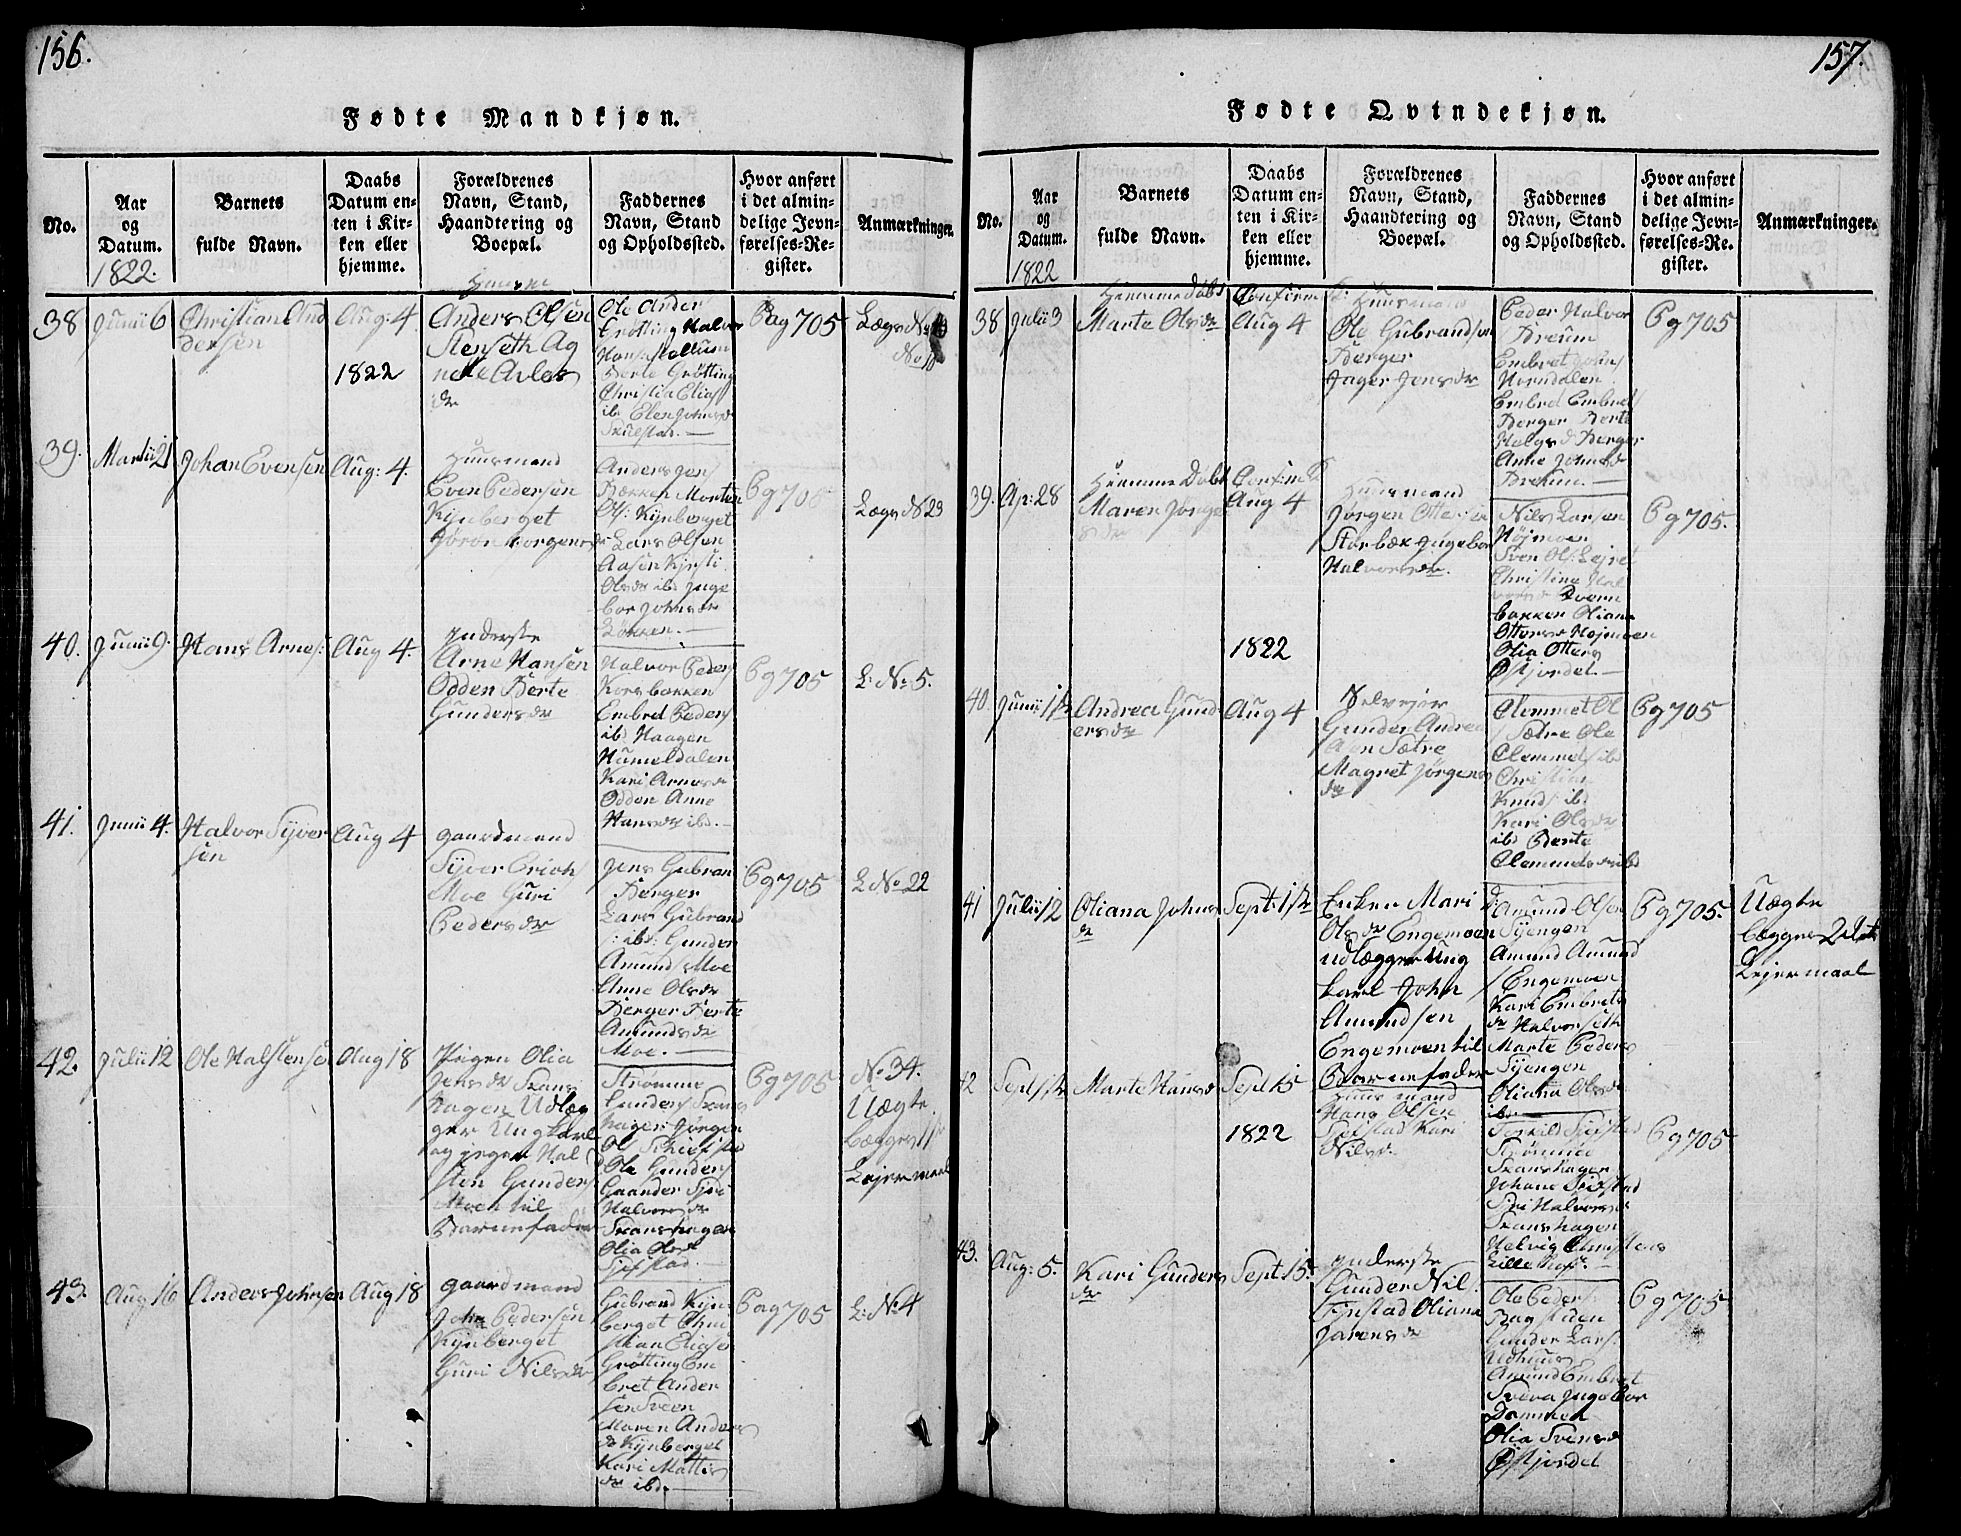 156.
Fødte Mandkjøn.
No.
Aar
og
Datum.
1822.
Barnets
fulde Navn.
Daabs
Datum en-
ten i Kir-
ken eller
hjemme.
Forældrenes
Navn, Stand,
Haandtering og
Boepæl.
Faddernes
Navn, Stand
og Opholdssted.
Hvor anført
i det almin-
delige Jevn-
førelses-Re-
gister.
Anmærkninger.
38
Junii 6
Christian And
dersen
Aug: 4
1822
Anders Olsen
Stenseth Ag
Ole Ander
Grötting Halvor
Berte Grötting
Christia Elias
ibd Elen Johnsd
Pag 705
Lægs No
No 10
39.
Martii 21
Johan Evensen
Aug: 4.
Huusmand
Even Pedersen
Kynberget
Anders Jens
Bækken Morten
Ols: Kynberget
Lars Olsen
Aasen Kjrsti
Olsdr ibd Inge
bor Johnsdr
Løkken.
Pg 705
Lægs No 23
40.
Junii 9.
Hans Arnes:
Aug 4.
Inderste
Arne Hansen
Odden Berte
Gundersdr
Halvor Peders
Korsbakken
Embret Peders
ibd Haagen
Hummeldalen
Kari Arnesdr
Odden Anne
Hansdr ibd.
Pg 705
L: No 5.
41.
Junii 4.
Halvor Syver
sen
Aug 4
gaardmand
Syver Erichs
Moe Guri
Pedersdr
Jens Gubran
Berger
Lars Gubrand
s: ibd: Gunder
Amunds Moe
Anne Olsdr
Berger Berte
Amundsdr
Moe.
Pg 705
L No 22
42.
Julii 12
Ole Halstense
Aug 18
Pigen Olia
Jensdr Skans
hagen Udlæg
ger Ungkarl
og jeger Hal
sten Gunders
Moen til
Barnefader
Strømme
Gunders Skans
hagen Jörgen
Ol Schiefstad
Ole Gunders
Gaarder Siri
Halvorsdr
Skanshagen
Olia Olsd
Sjefstad.
Pg 705
No 34.
Uægte
begges 1ste
Lejermaal
43.
Aug 16
Anders Johnsen
Aug 18
gaardmand
John Pedersen
Kynberget
Guri Nilsdr
Gubrand Kyn
berget Chri
stian Eliasen
Grötting Em
bret Ander
sen Sveen
Maren Anders
dr Kynberget
Kari Mattis
dr ibd.
Pag 705
L: No 4
157.
Fødte Qvindekjøn.
No.
Aar
og
Datum.
1822
Barnets
fulde Navn.
Daabs
Datum en-
ten i Kir-
ken eller
hjemme.
Forældrenes
Navn, Stand,
Haandtering og
Boepæl.
Faddernes
Navn, Stand
og Opholdssted.
Hvor anført
i det almin-
delige Jevn-
førelses-Re-
gister.
Anmærkninger.
38
Julii 3
Hiemme Døbt
Marte Olsdr
Aug 4
Huusmand
Ole Gubrandsen
Berger
Jager Jensdr
Peder Halvor
Breum
Embret
Horndalen
Embret Embrets
Berger Berte
Halgsd Berger
Anne Johnsdr
Breum.
Pg 705
39.
Ap: 28
Hiemme Døbt
Maren Jørge
Aug 4
1822
Huusmand
Jørgen Ottersen
Storbæk Ingebor
Halvorsdr.
Nils Larsen
Höjmoen
Sven Ols: Lejret
Christine Hal
Qvern
bakken Oliana
Ottersd Hojmoen
Olia Otters
Østjordet
Pg 705.
40.
Junii 1ste
Andrea Gund
ersdr
Aug 4
Selvejer
Gunder Andrea
sen Sætre
Magret Jörgens
dr
Clemmet Ol
s Sætre Ole
Clemmets ibd
Christian
Knuds ibd.
Kari Olsdr
ibd Berte
Clemmetsdr ibd
Pg 705
41
Julii 12
Oliana Johns
dr
Sept: 1ste
Enken Mari
Olsdr Engemoen
udlægger Ung
karl John
Amundsen
Engemoen til
Barnefader
Amund Olsen
Syengen
Amund Amund
s Engemoen
Kari Embrets
dr Halvorseth
Marte Peders
Syengen
Oliana Olsdr
ibd.
Pg 705.
Uægte
begges 2det
Lejermaal
42
Sept 1ste
Marte Hansd
Sept 15
1822
Huusmand
Hans Olsen
Sjefstad Kari
Nilsd.
Torkild Sjefstad
Strømme
Skanshagen
Johane Sjefstad
Siri Halvorsdr
Skanshagen
Helvig Christens
Lille
Pg 705
43.
Aug: 5.
Kari Gunders
dr
Sept: 15.
Inderste
Gunder Nil
Tynstad Oliana
Jarensdr
Ole Peders:
Bagstuen
Gunder Lars:
Udhuus
Amund Embret
Svera Ingebor
Dammen
Olia Svensd
Østjordet
Pg 705